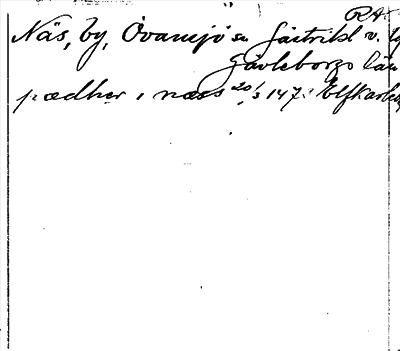 RA.
Näs, by, Ovansjö sn Gästrikl v.
Gävleborgs län
pædher i næss 20/3 147 Elfkarleby